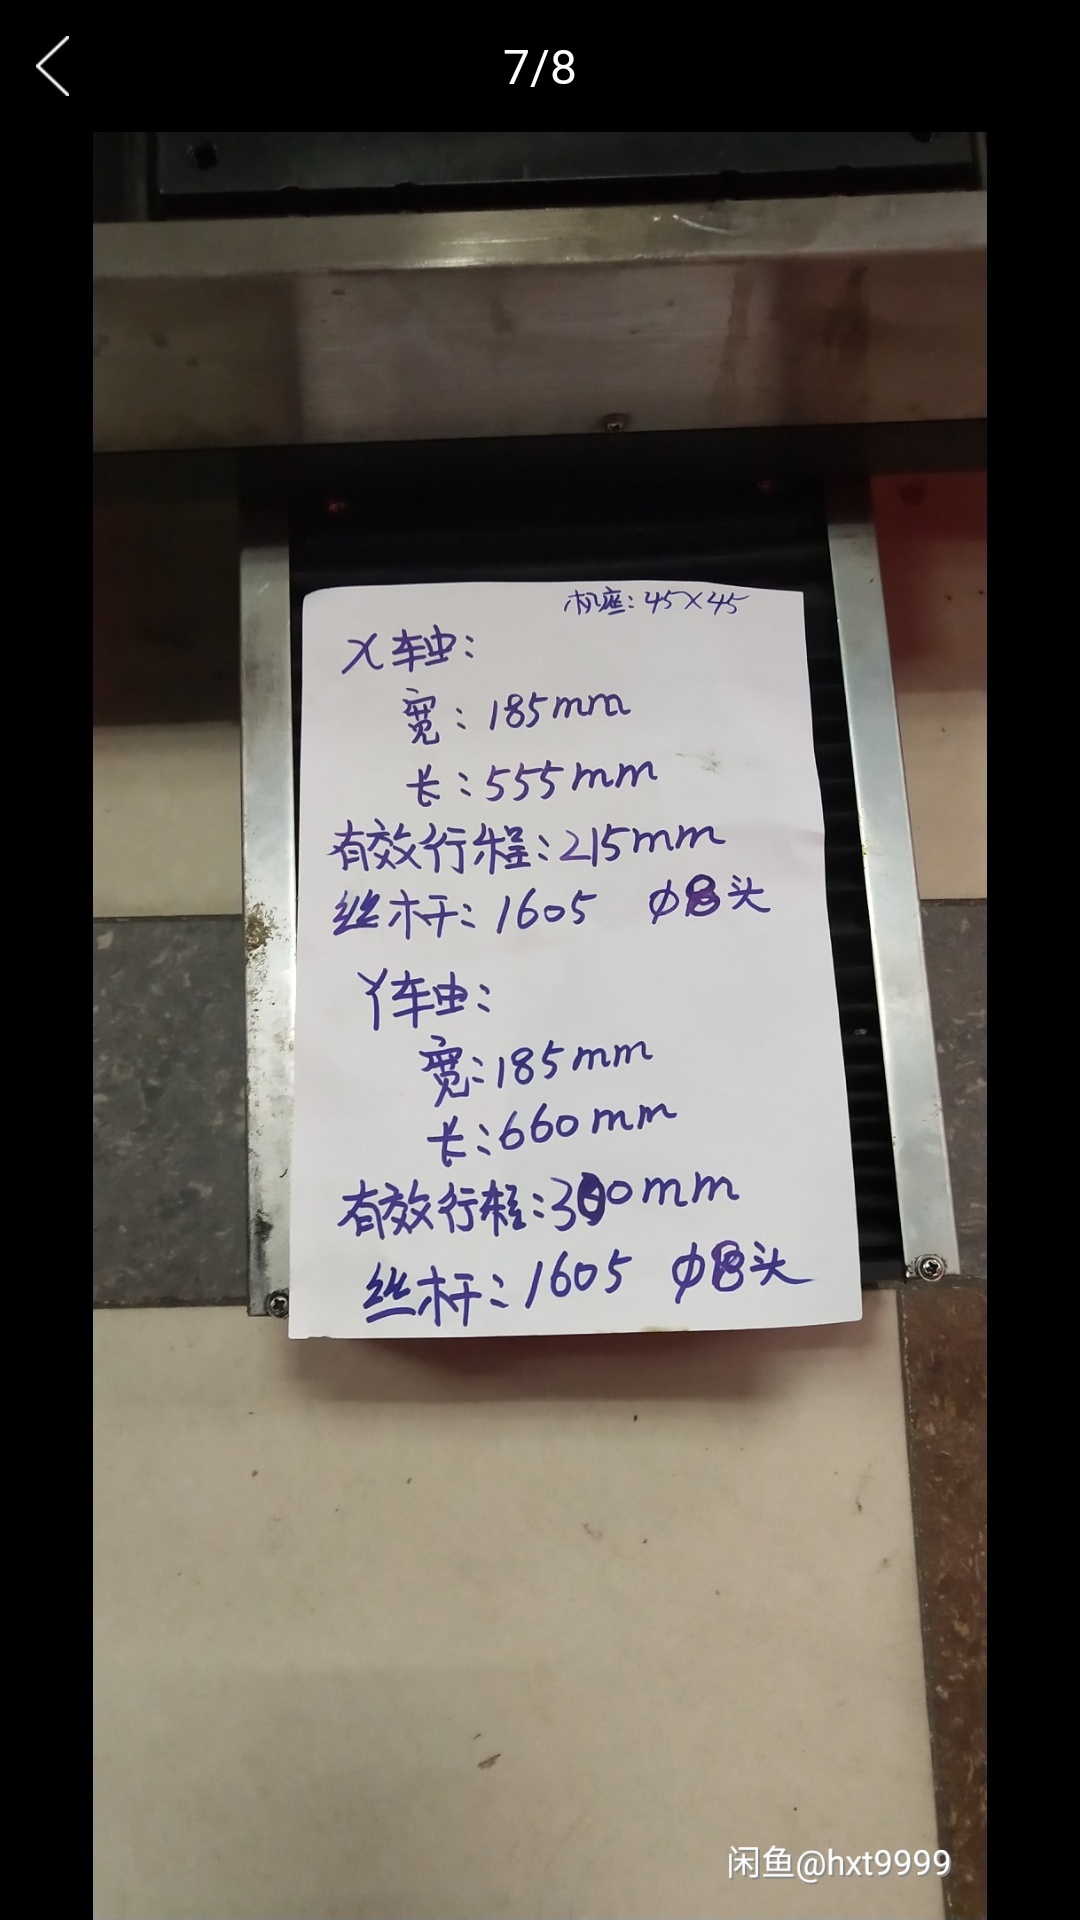 7/8
机座：45×45
X轴：
宽：185mm
长：555mm
有效行程：215mm
丝杆：1605 φ8头
Y轴：
宽：185mm
长：660mm
有效行程：300mm
丝杆：1605 φ8头
闲鱼@hxt9999